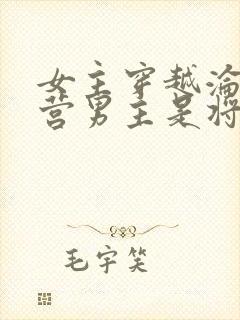 女主穿越沦
营男主是将
毛宇笑